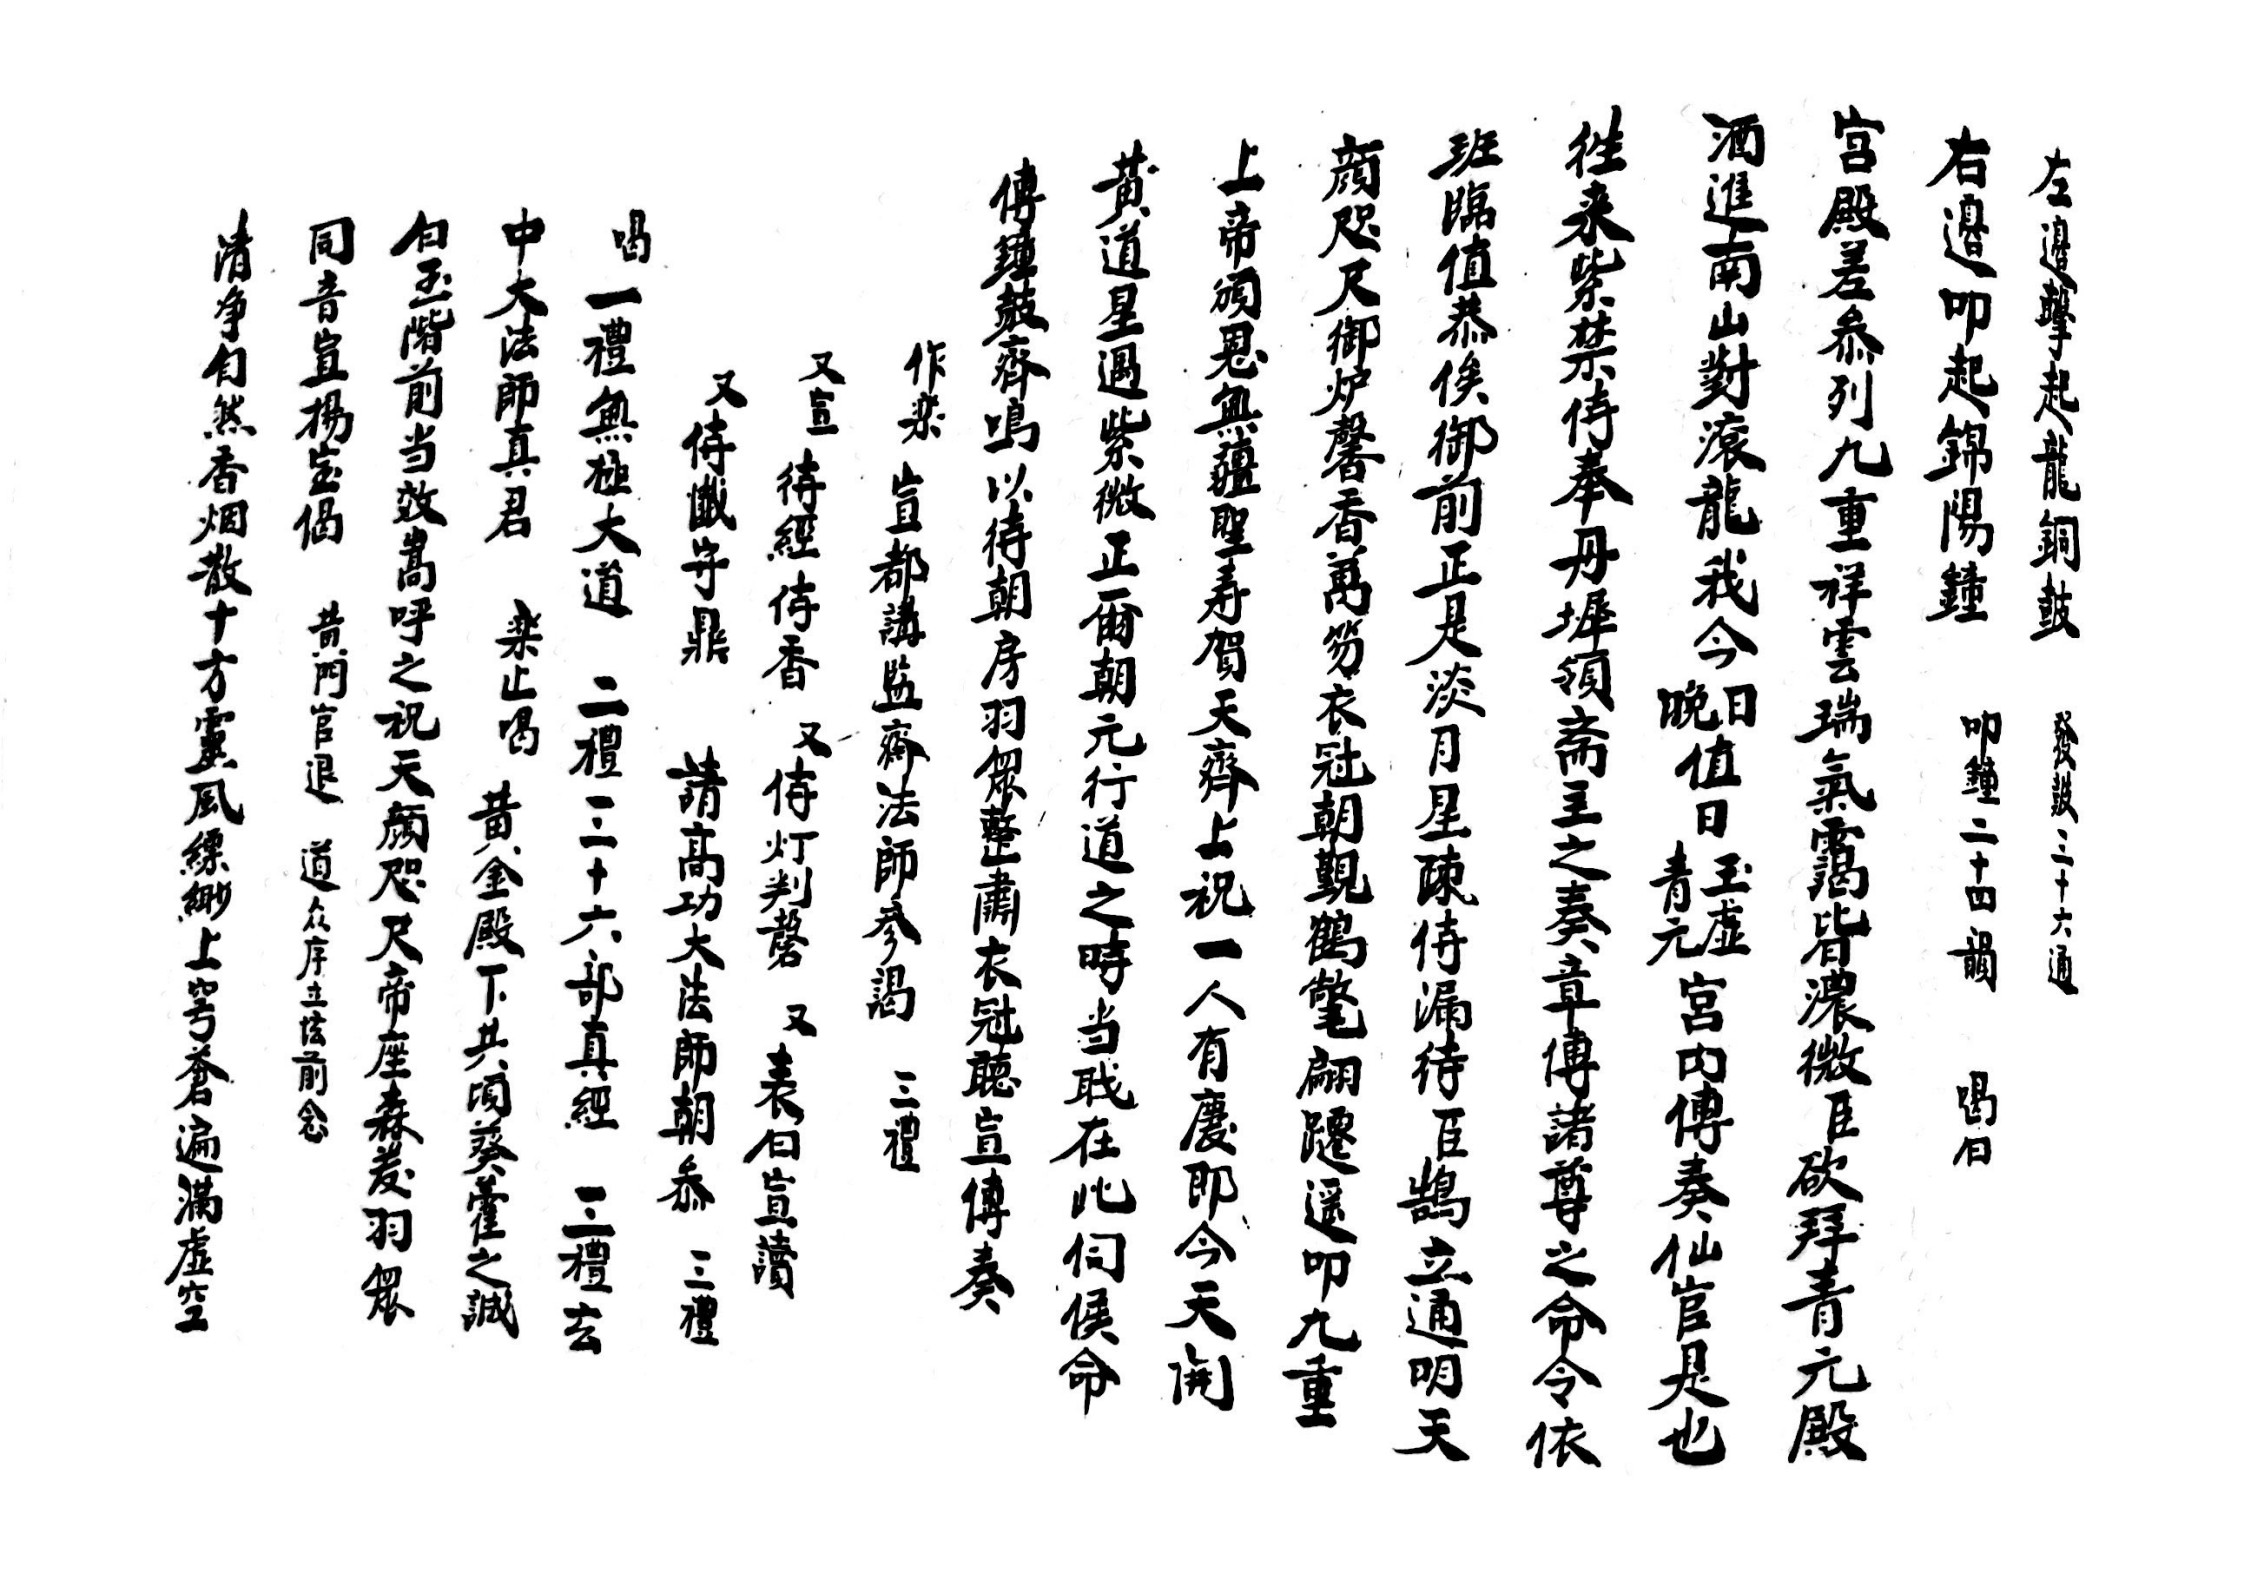 左邊擊起龍銅鼓　發鼓三十六通
右邊叩起錦陽鐘　叩鐘二十四韻　喝曰
宮殿差叅列九重祥雲瑞氣靄皆濃微臣欲拜青元殿
酒進南山對滾龍我今日晚值日玉虛青元宮內傳奏仙官是也
徃来紫禁侍奉丹墀領斋主之奏章傳諸尊之命令依
班臨值恭俟御前正是淡月星疎侍漏待臣鵠立通明天
顔咫尺御炉馨香萬笏衣冠朝覲鶴氅翩躚遥叩九重
上帝頒恩無疆聖寿賀天齊上祝一人有慶即今天開
黄道星遇紫微正爾朝元行道之時当戝在此伺候命
傳鐘鼓齊鳴以待朝房羽眾整肅衣冠聽宣傳奏
作楽　宣都講監齋法師参謁　三禮
又宣　待經侍香　又侍灯判磬　又表白宣讀
又侍懺守鼎　請高功大法師朝叅　三禮
喝　一禮無極大道　二禮三十六部真經　三禮玄
中大法師真君　楽止喝　黄金殿下共頃葵藿之誠
白玉階前当效嵩呼之祝天顔咫尺帝座森嚴羽眾
同音宣揚宝偈　黄門官退　道众序立坛前念
清净自然香烟散十方靈風縹緲上穹蒼遍滿虛空